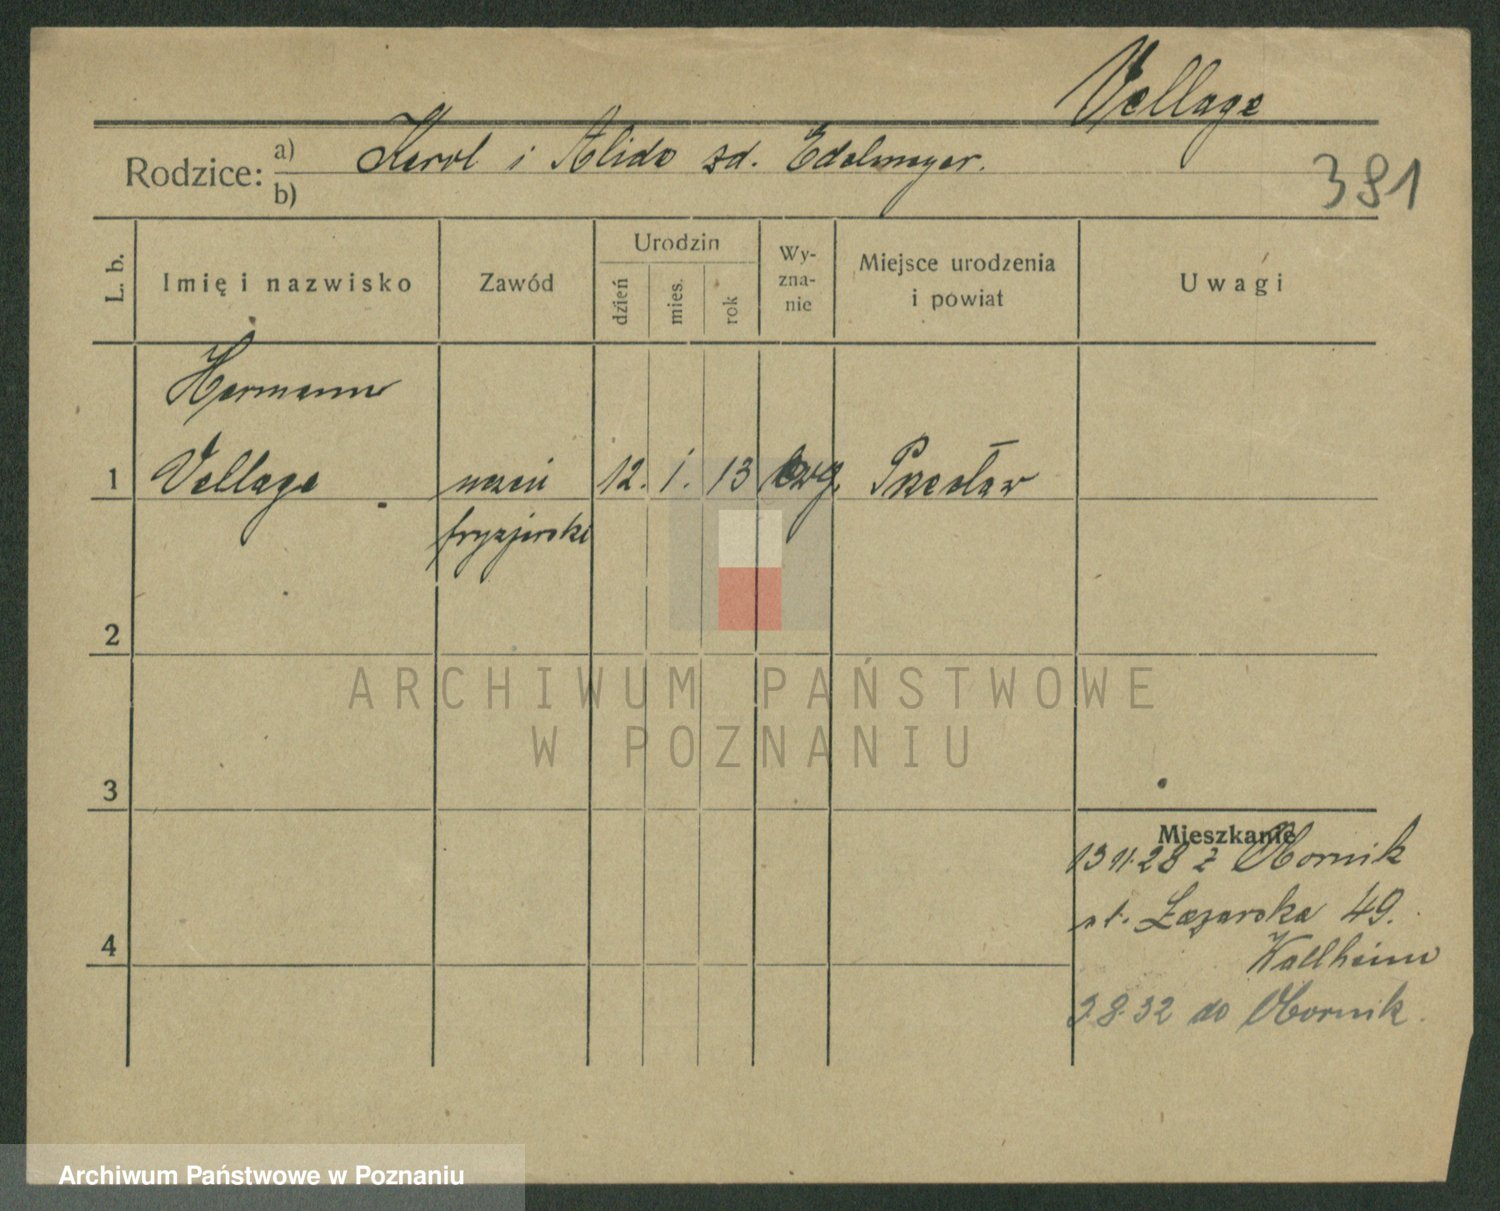 Vellage
Rodzice: a) Karol i Alida zd. Edelmeyer.
b)
381
L. b.
Imię i nazwisko
Zawód
Urodzin
dzień
mies.
rok
Wy-
zna-
nie
Miejsce urodzenia
i powiat
Uwagi
Hermann
1 Vellage uczeń 12. 1. 13 ewg. Przecław
fryzjerski
2
3
4
Mieszkanie
13 11 28 z Obornik
st. Łazarska 49.
Wallheim
3.8.32 do Obornik.
ARCHIWUM PAŃSTWOWE
W POZNANIU
Archiwum Państwowe w Poznaniu